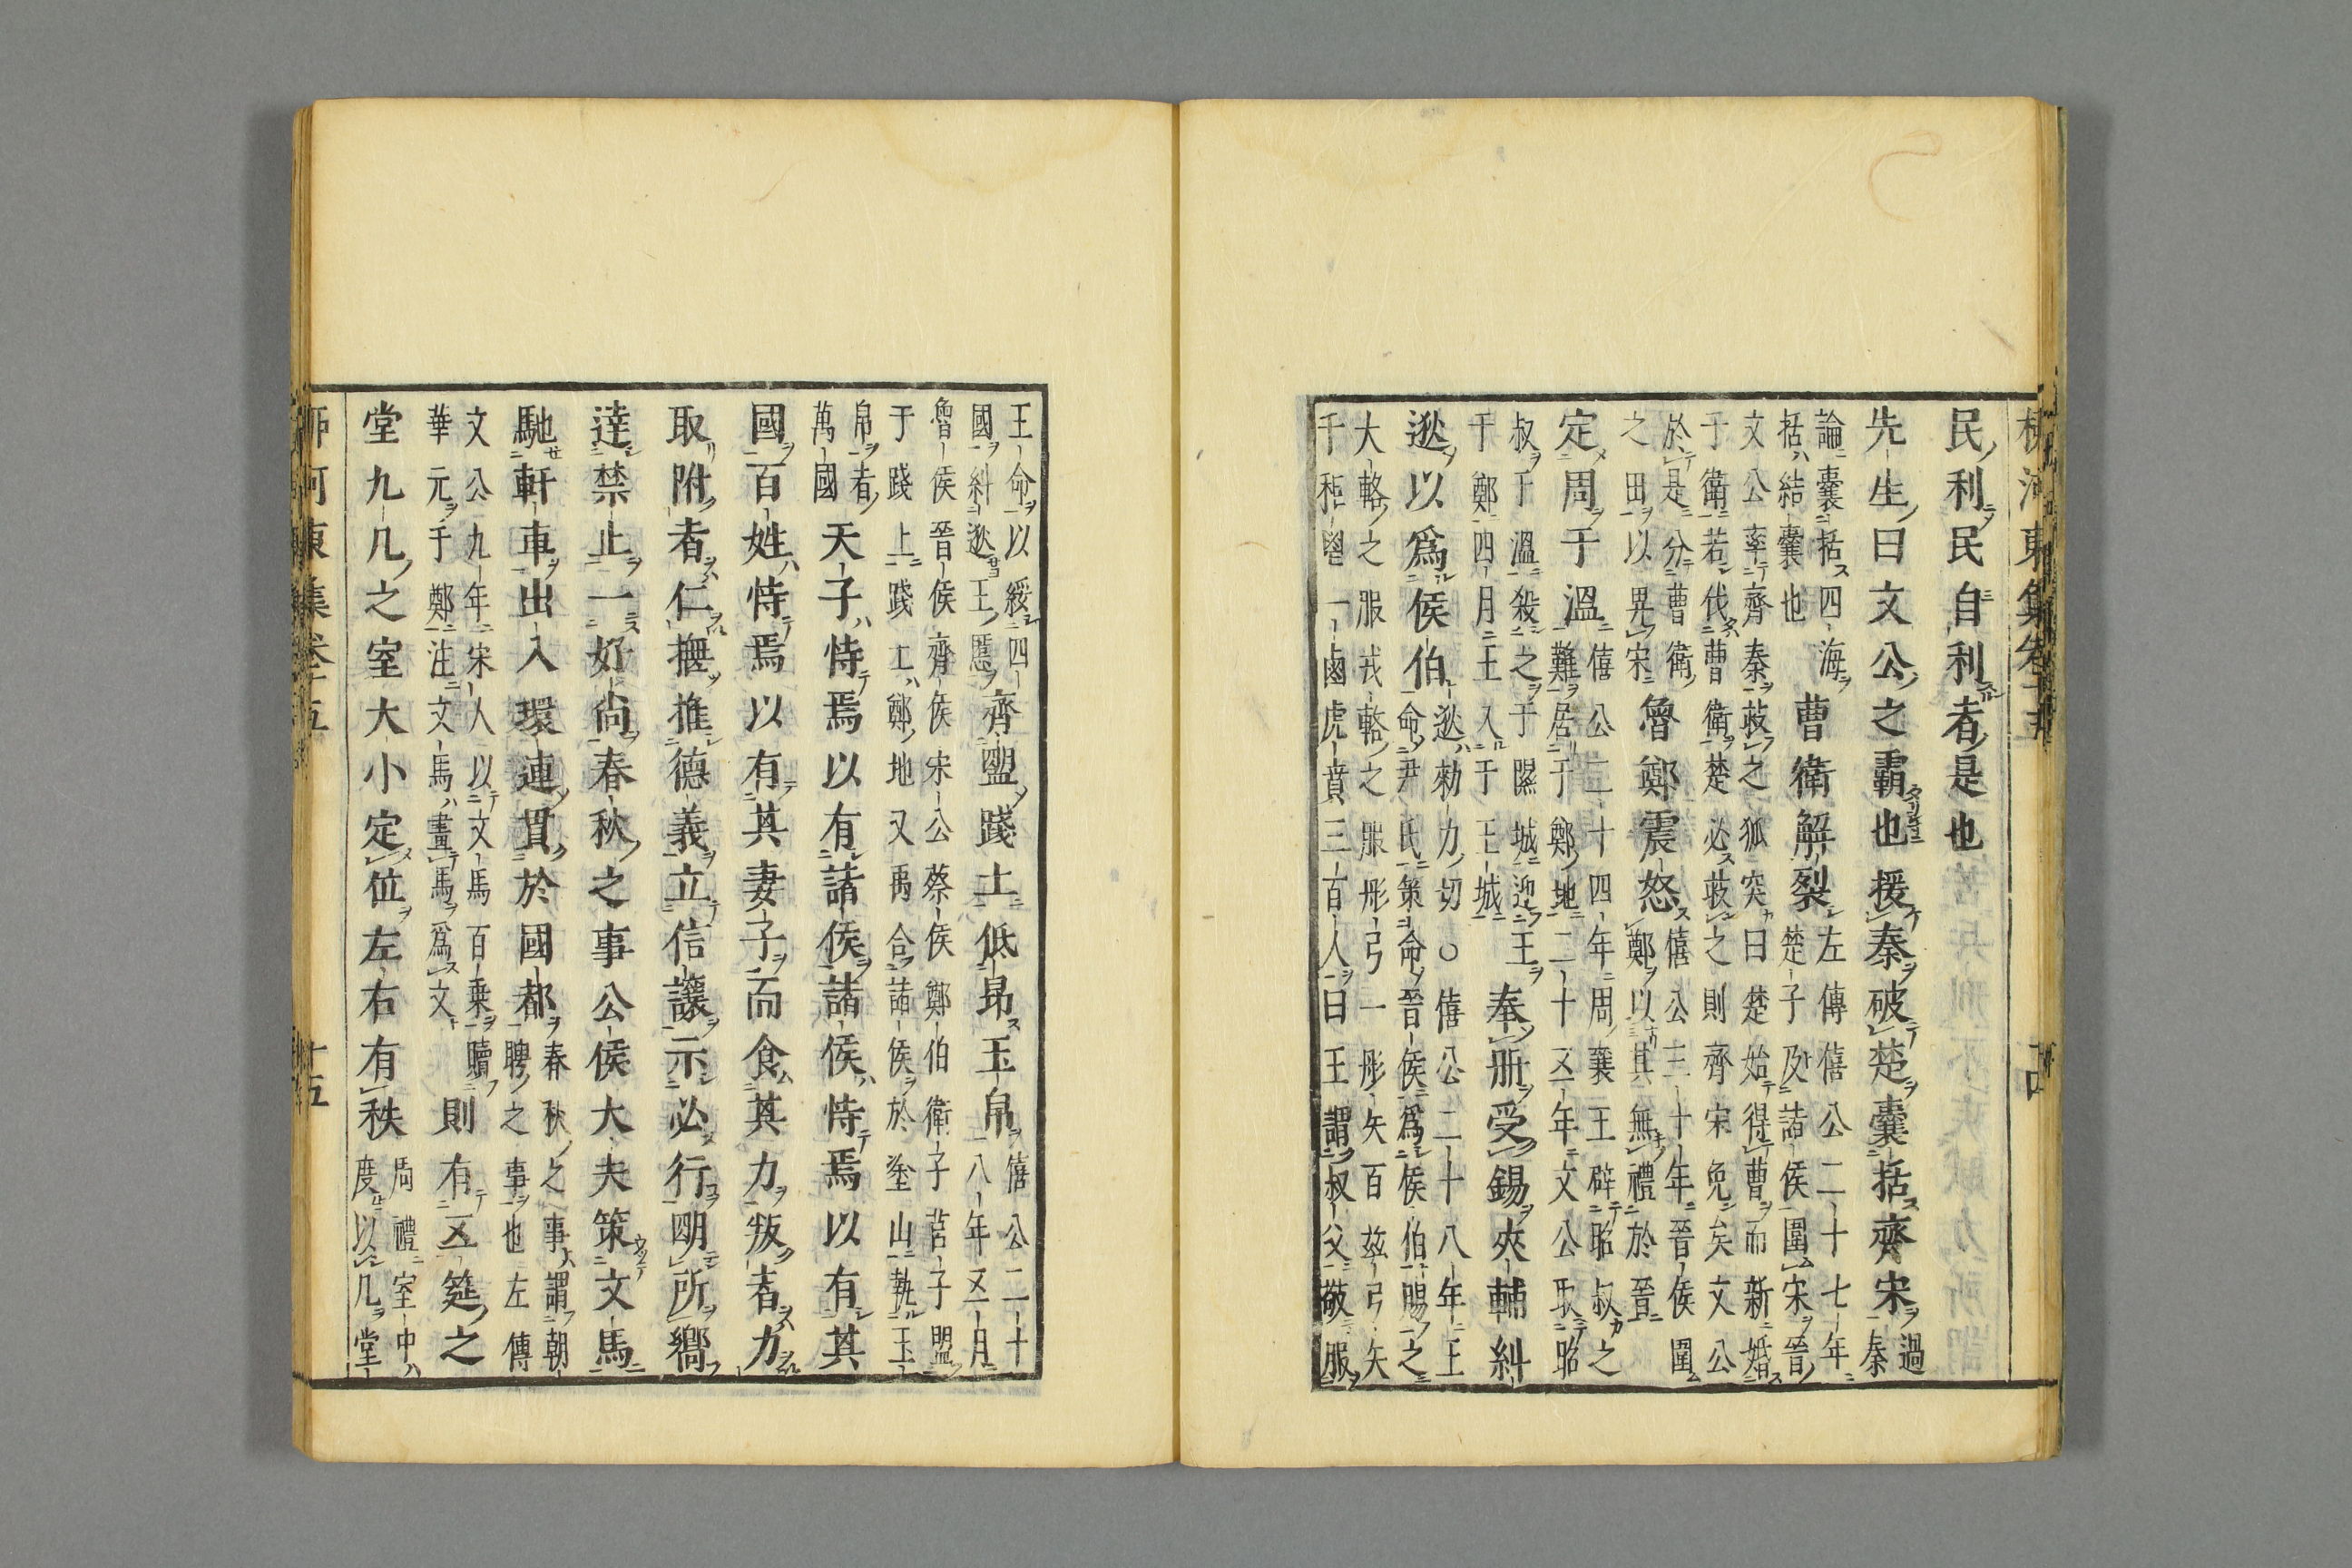 柳河東集卷十五 十四
民利民自利者是也
先生曰文公之霸也援秦破楚囊括齊宋
過
秦
論囊括四海
括結囊也
曹衛解裂
左傳僖公二十七年
楚子及諸侯圍宋晉
文公率齊秦救之狐突曰楚始得曹而新婚
于衛若伐曹衛楚必救之則齊宋免矣文公
於是分曹衛
之田以畀宋
魯鄭震怒
僖公三十年晉侯圍
鄭以其無禮於晉
定周于溫
僖公二十四年周襄王辟昭叔之
難居于鄭地二十五年文公取昭
叔于溫殺之于隰城迎王
于鄭四月王入于王城
奉冊受錫夾輔糾
逖以爲侯伯
逖勑力切○僖公二十八年王
命尹氏策命晉侯爲侯伯賜之
大輅之服戎輅之服彤弓一彤矢百玆弓矢
千秬鬯一卣虎賁三百人曰王謂叔父敬服
王命以綏四
國糾逖王慝
齊盟踐土低昂玉帛
僖公二十
八年五月
魯侯晉侯齊侯宋公蔡侯鄭伯衛子莒子盟
于踐土踐土鄭地又禹合諸侯於塗山執玉
帛者
萬國
天子恃焉以有諸侯諸侯恃焉以有其
國百姓恃焉以有其妻子而食其力叛者力
取附者仁撫推德義立信讓示必行明所嚮
達禁止一好尚春秋之事公侯大夫策文馬
馳軒車出入環連貫於國都
春秋之事謂朝
聘之事也左傳
文公九年宋人以文馬百乘贖
華元于鄭注文馬畫馬爲文
則有五筵之
堂九几之室大小定位左右有秩
周禮室中
度以几堂
柳河東集卷十五 十五